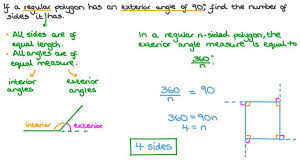 If a regular polygon has an exterior angle of 90°, find the number of
sides it has.
• All sides are of
equal length.
• All angles are of
equal measure.
interior
angles
exterior
angles
interior
exterior
In a regular n-sided polygon, the
exterior angle measure is equal to
360°
n
360
n
= 90
360 = 90n
4 = n
4 sides